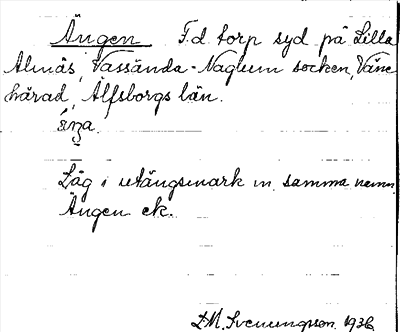 Ängen F.d. torp syd på Lilla
Almås, Vassända-Naglum socken, Väne
härad, Älfsborgs län.
Låg i utängsmark m. samma namn
Ängen ek.
D.M. Svenungsson 1936